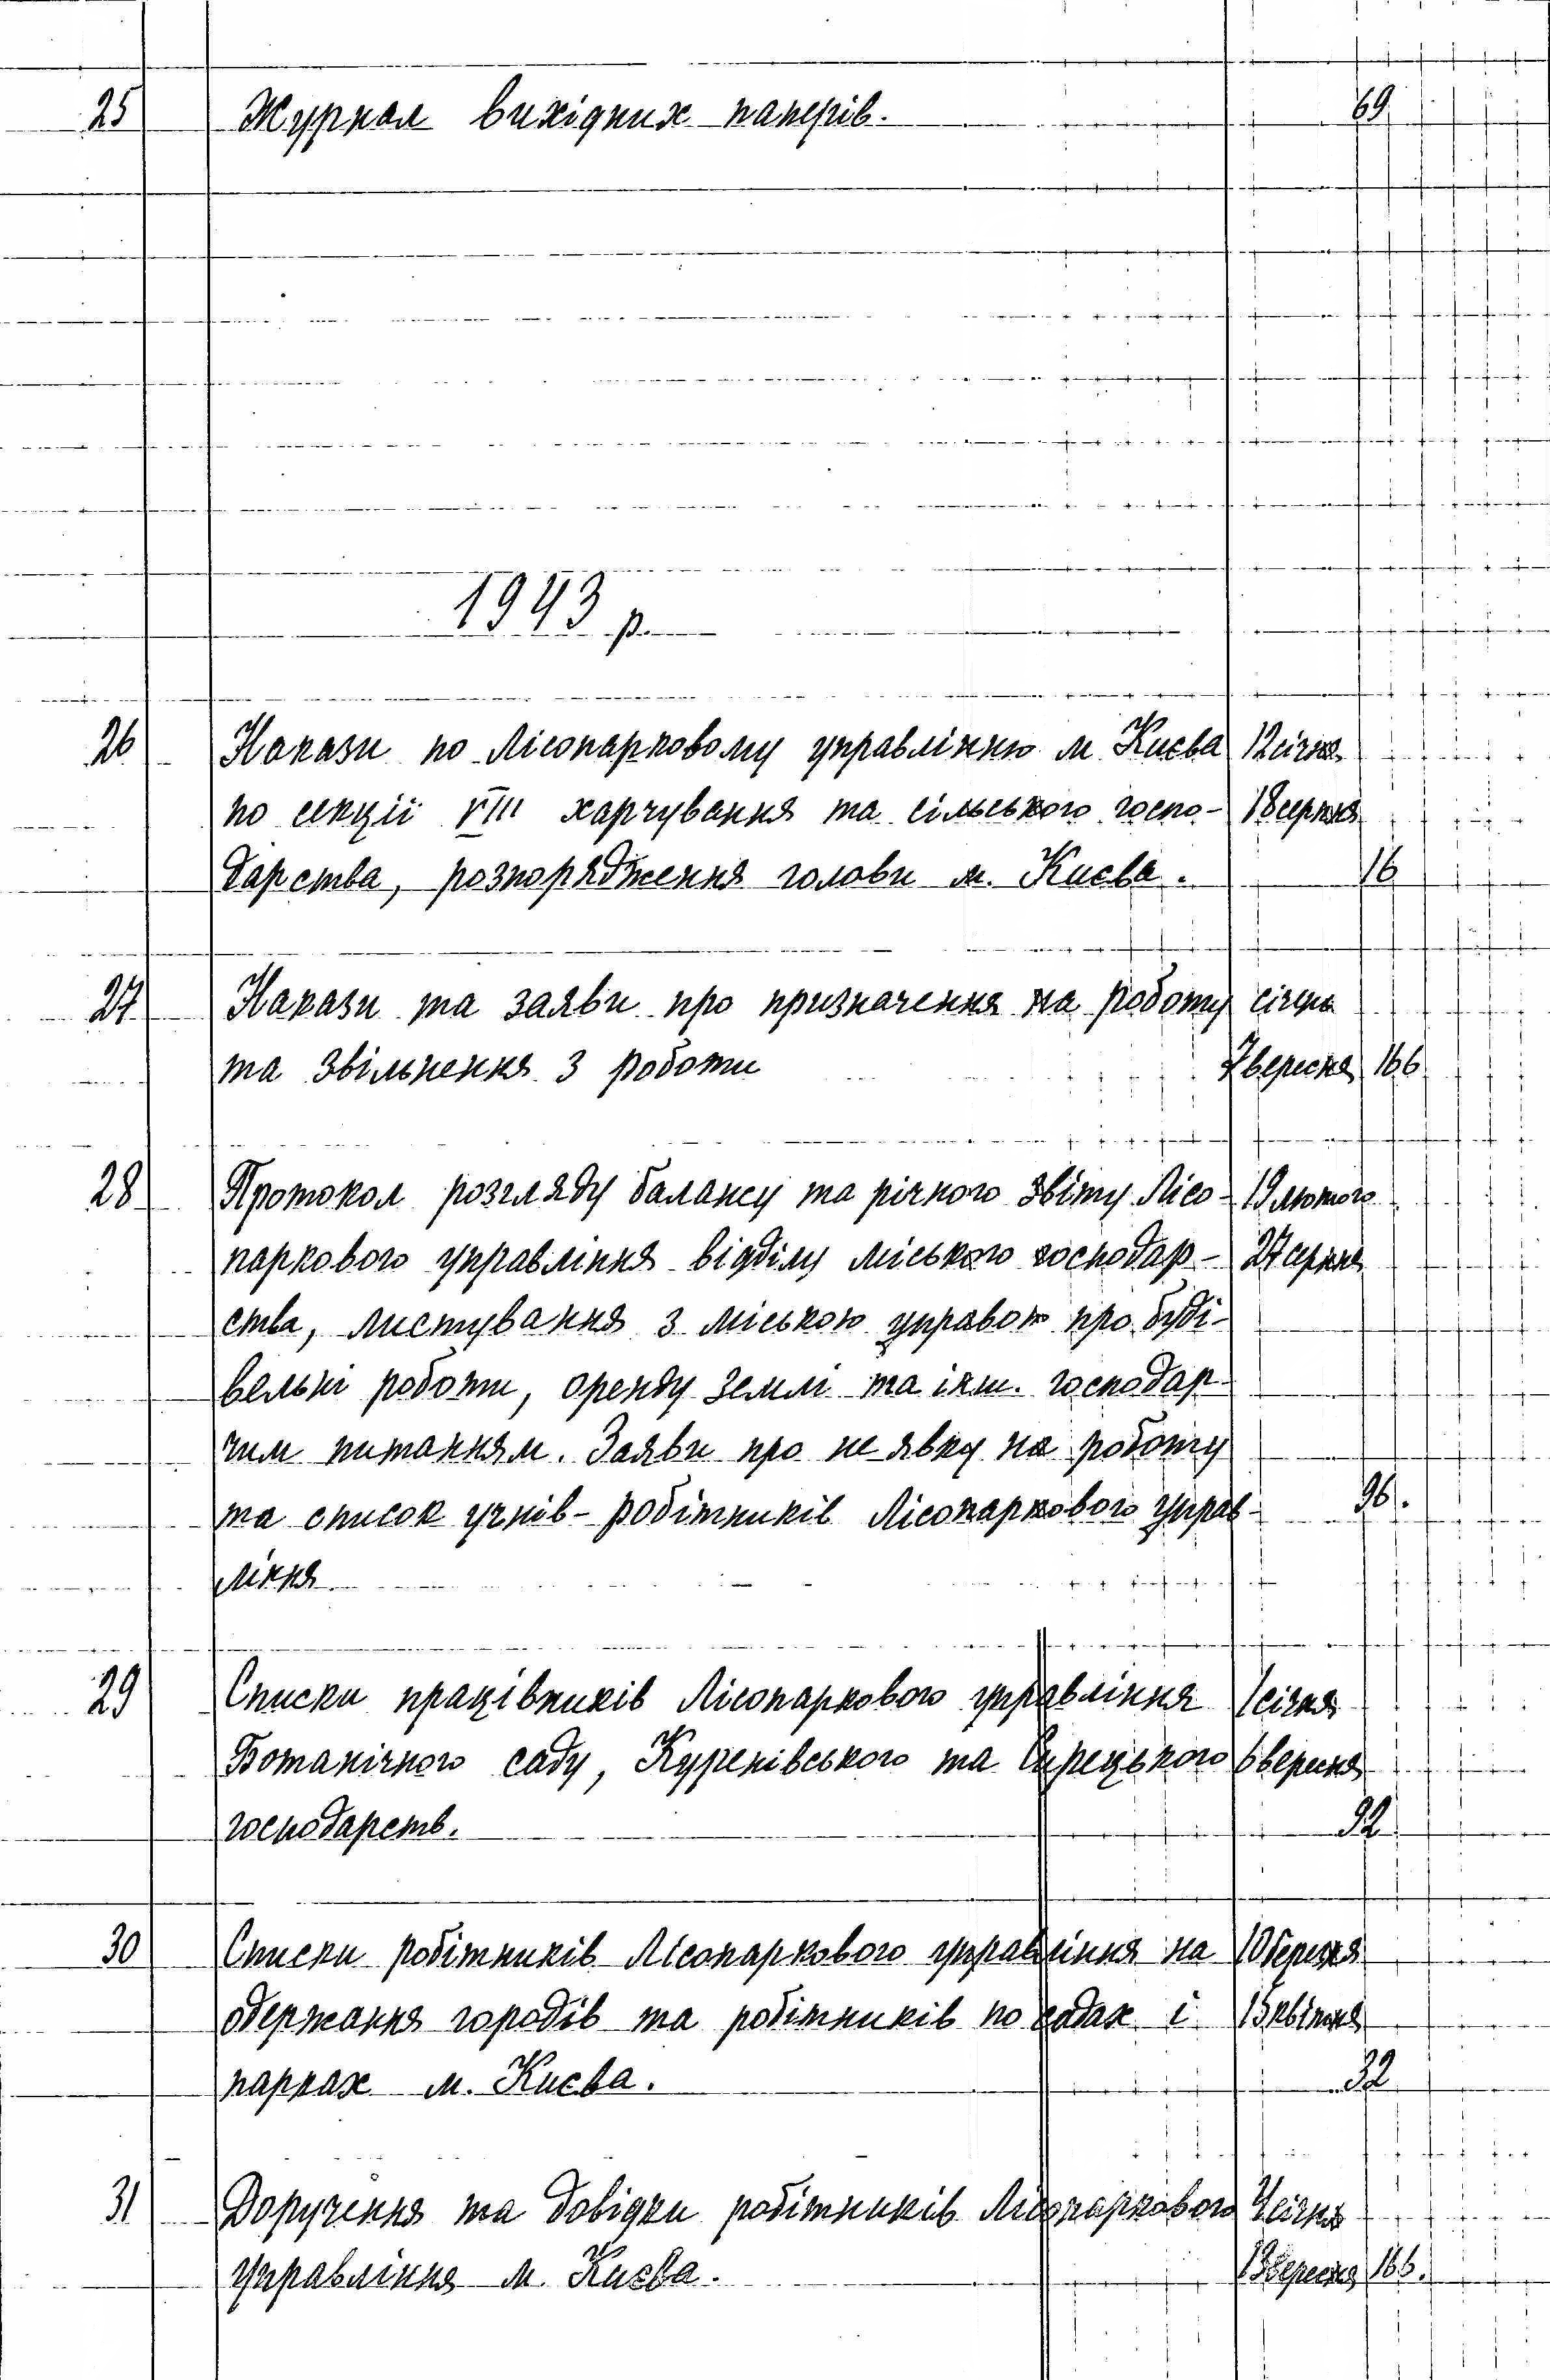 25 Журнал вихідних паперів. 69
1943 р.
26 Накази по Лісопарковому управлінню м. Києва 12 січня
по секції VIII харчування та сільського госпо- 18 серпня
дарства, розпорядження голови м. Києва. 16
27 Накази та заяви про призначення на роботу січень
та звільнення з роботи 7 вересня 166
28 Протокол розгляду балансу та річного звіту Лісо- 19 лютого
паркового управління відділу міського господар- 27 серпня
ства, листування з міською управою про буді-
вельні роботи, оренду землі та інш. господар-
чим питанням. Заяви про неявку на роботу
та список учнів-робітників Лісопаркового управ- 96.
ління
29 Списки працівників Лісопаркового управління 1 січня
Ботанічного саду, Куренівського та Сирецького 6 вересня
господарств. 92
30 Списки робітників Лісопаркового управління на 10 березня
одержання городів та робітників по садах і 15 квітня
парках м. Києва. 32
31 Доручення та довідки робітників Лісопаркового січня
управління м. Києва. 13 вересня 166.